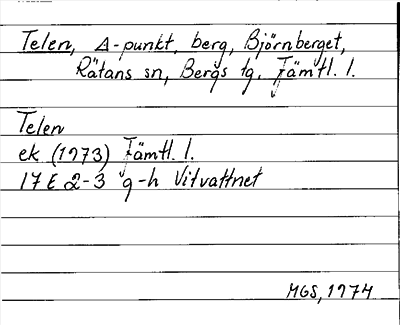 Telen, Δ-punkt, berg, Björnberget,
Rätans sn, Bergs tg, Jämtl. l.
Telen
ek (1973) Jämtl. l.
17 E 2-3 g-h Vitvattnet
MGS, 1974